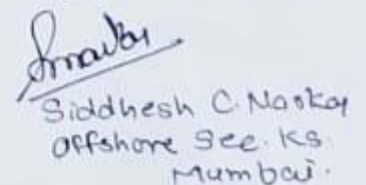 Siddhesh C. Naokar
Offshore Sec. KS.
Mumbai.